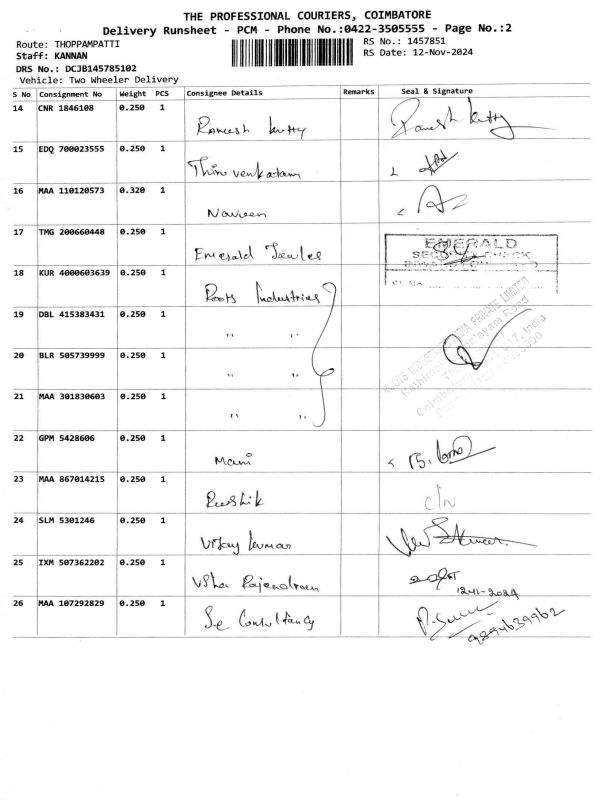 THE PROFESSIONAL COURIERS, COIMBATORE
Delivery Runsheet - PCM - Phone No.:0422-3505555 - Page No.:2
Route: THOPPAMPATTI RS No.: 1457851
Staff: KANNAN RS Date: 12-Nov-2024
DRS No.: DCJB145785102
Vehicle: Two Wheeler Delivery
S No Consignment No Weight PCS Consignee Details Remarks Seal & Signature
14 CNR 1846108 0.250 1
Ramesh kutty Ramesh kutty
15 EDQ 700023555 0.250 1
Thiru venkatam
16 MAA 110120573 0.320 1
Naveen
17 TMG 200660448 0.250 1
Emerald Jewles EMERALD
18 KUR 4000603639 0.250 1
Roots Industries
19 DBL 415383431 0.250 1
" "
20 BLR 505739999 0.250 1
" "
21 MAA 301830603 0.250 1
" "
22 GPM 5428606 0.250 1
Mani
23 MAA 867014215 0.250 1
24 SLM 5301246 0.250 1
Vijay kumar
25 IXM 507362202 0.250 1
Usha Rajendran
12-11-2024
26 MAA 107292829 0.250 1
Se Consultancy
9894639962